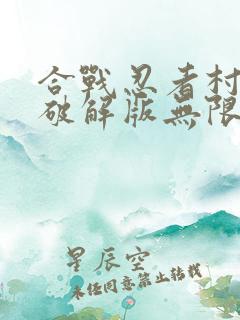 合戰忍者村
破解版無限
星辰空
未经同意禁止转载